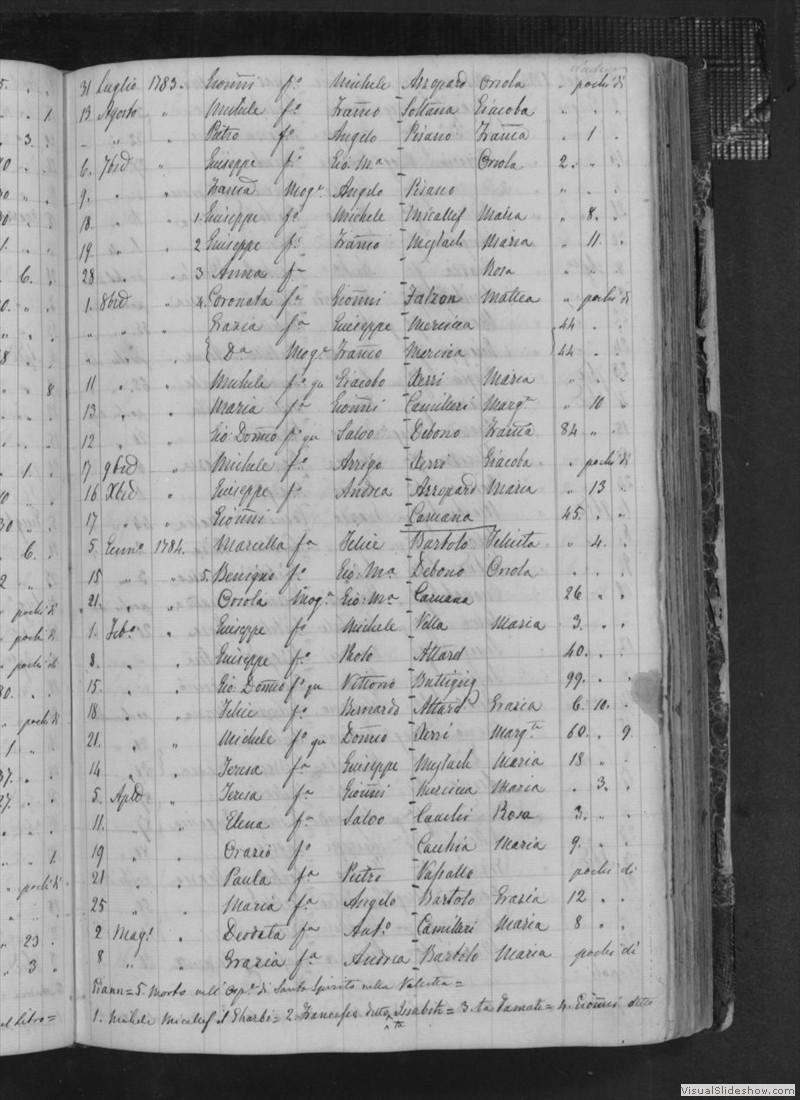 31 Luglio 1783. Gioñi fo. Michele Azzopard Orsola " pochi di
13 Agosto " Michele fo. Franco Soltana Giacoba " " "
" " Pietro fo. Angelo Pisano Franca " 1 "
6. 7bre " Giuseppe fo. Gio: Ma Orsola 2. " "
9. " " Franca Moge. Angelo Pisano " "
18. " " 1. Giuseppe fo. Michele Micallef Maria " 8. "
19 " " 2 Giuseppe fo. Franco Mejlach Maria " 11. "
28 " " 3 Anna fa Rosa " "
1. 8bre " 4. Coronata fa Gioñi Falzon Mattea " pochi di
" " " Grazia fa Giuseppe Mercieca 44 " "
" " " Da Moge. Franco Mercieca 44 " "
11 " " Michele fo. qu Giacobo Xerri Maria " "
13 " " Maria fa Gioñi Camilleri Margta " 10 "
12 " Gio: Domco fo. qu Salvo Debono Franca 84 " "
17 9bre " Michele fo. Arrigo Xerri Giacoba " pochi di
16 Xbre " Giuseppe fo. Andrea Azzopard Maria " 13 "
17 " " Gioñi Caruana 45. " "
5. Genno 1784. Marcella fa Felice Bartolo Felicita " 4. "
15 " " 5. Benigno fo. Gio: Ma Debono Orsola " " "
21. " " Orsola Moge. Gio: Ma Caruana 26 " "
1. Febo " Giuseppe fo. Michele Vella Maria 3. " "
8. " " Giuseppe fo. Paolo Attard 40. " "
15. " " Gio: Domco fo. qu Vittorio Buttigieg 99. " "
18 " " Felice fo. Bernardo Attard Grazia 6. 10. "
21. " " Michele fo. qu Domco Xerri Margta 60. " 9.
14 " Teresa fa Giuseppe Mejlach Maria 18 "
5. Aple " Teresa fa Gioñi Mercieca Maria " 3. "
11. " " Elena fa Salvo Cauchi Rosa 3. "
19 " Orazio fo Cauchia Maria 9. "
21 " " Paula fa Pietro Vassallo pochi di
25 " Maria fa Angelo Bartolo Grazia 12 "
2 Mago. " Deodata fa Anto. Camilleri Maria 8 "
8 " Grazia fa Andrea Bartolo Maria pochi di
= 5. Morto nell' Ospe. di Santo Spirito nella Valletta =
1. Michele Micallef il Gharbi = 2. detto = 3. ta = 4. Gioñi detto
VisualSlideshow.com